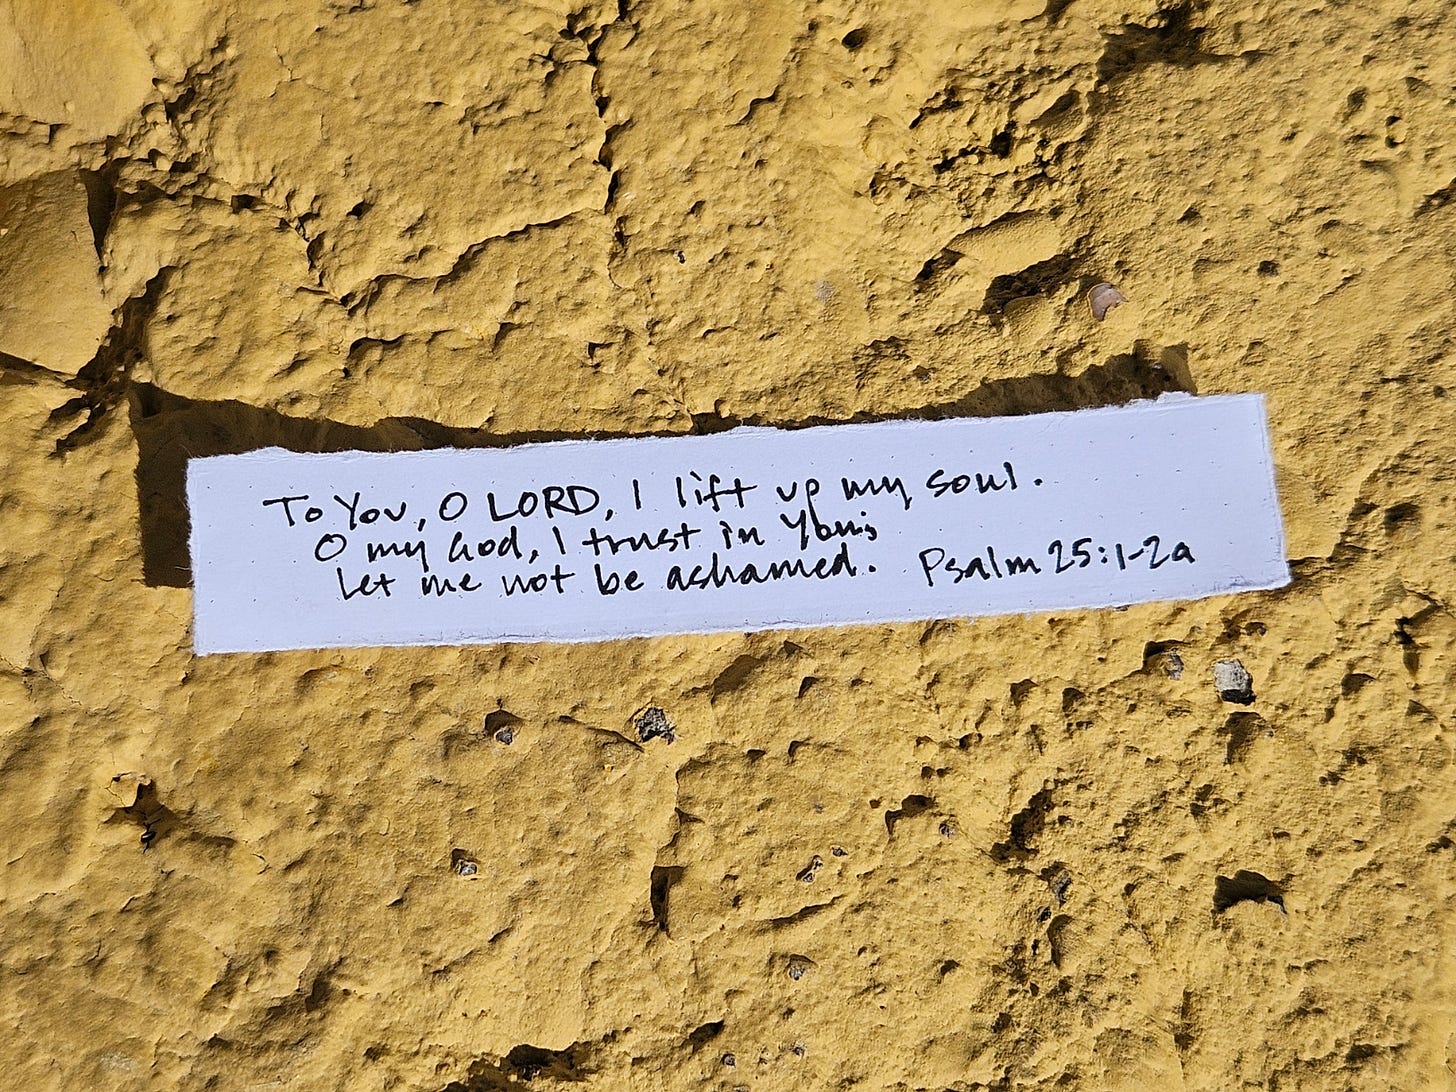 To You, O LORD, I lift up my soul.
O my God, I trust in You;
Let me not be ashamed. Psalm 25:1-2a